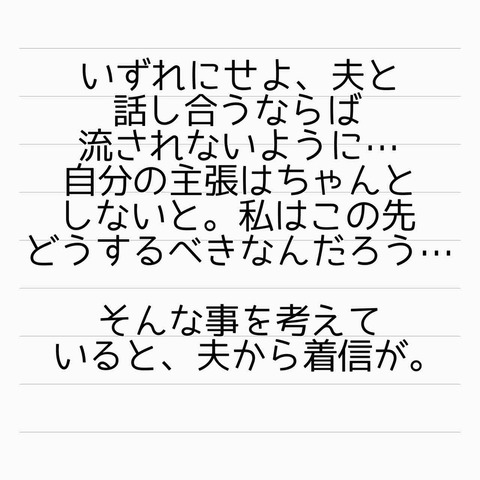 いずれにせよ、夫と
話し合うならば
流されないように…
自分の主張はちゃんと
しないと。私はこの先
どうするべきなんだろう…
そんな事を考えて
いると、夫から着信が。